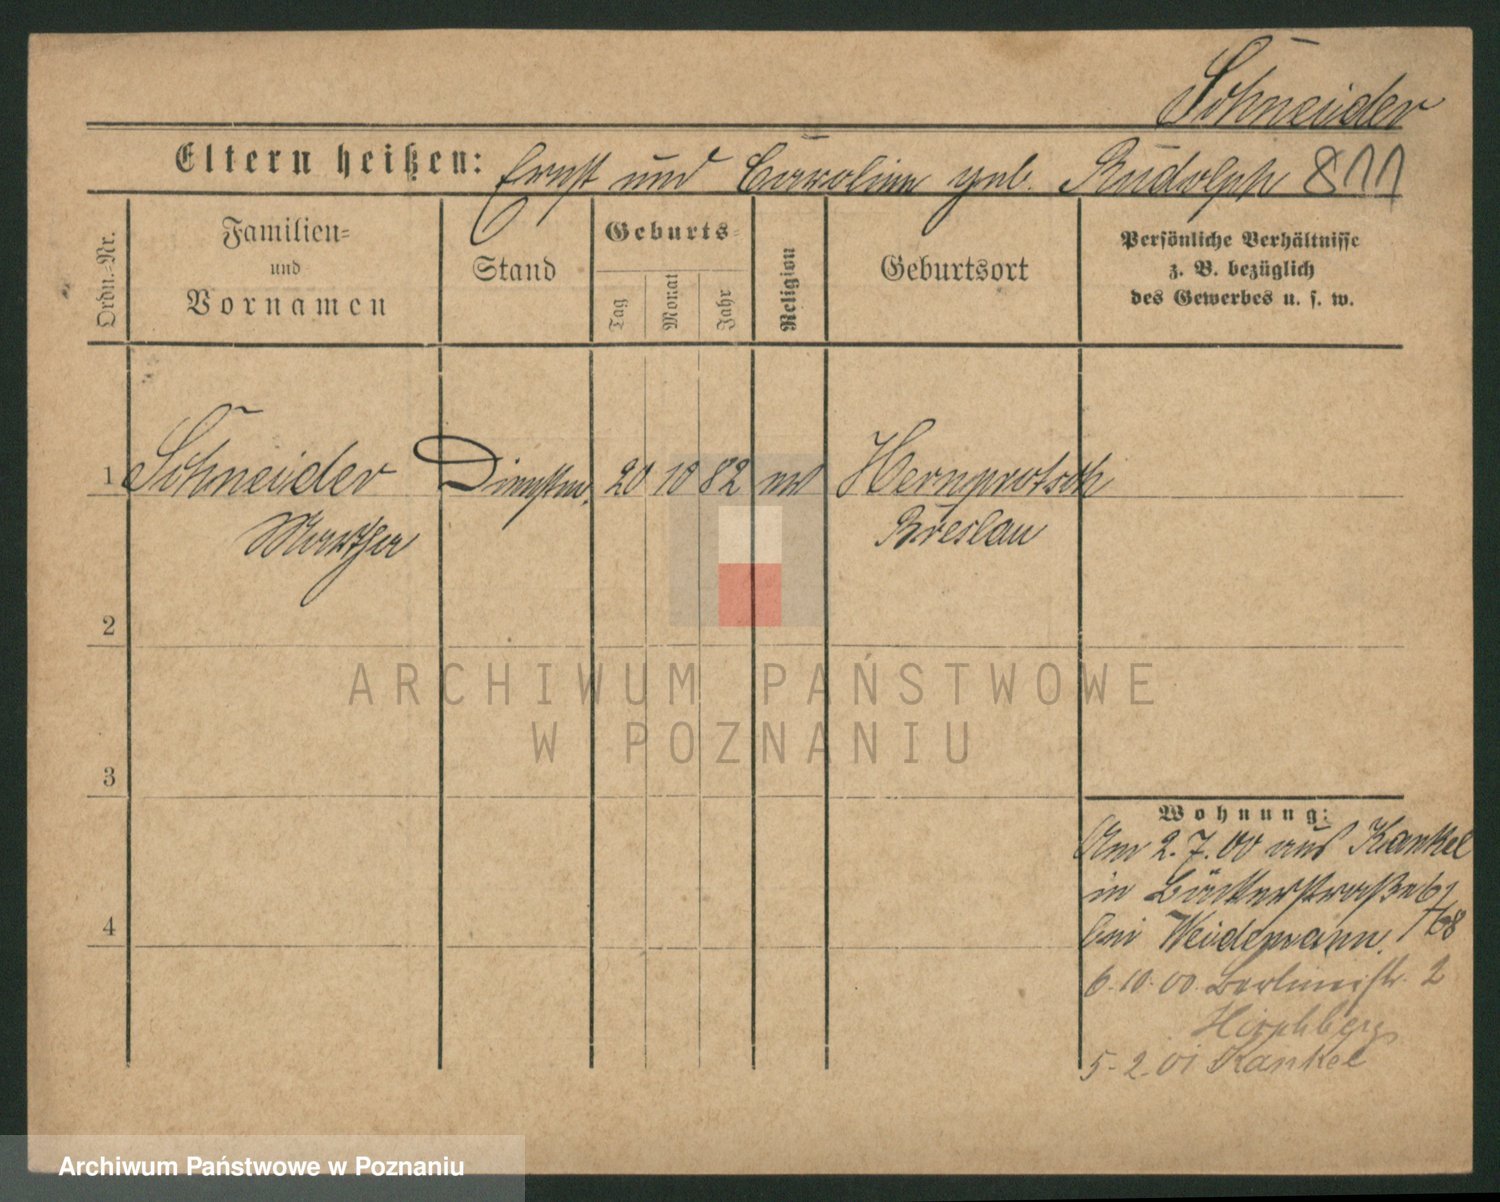 Schneider
Eltern heißen: Ernst und Caroline geb. Rudolph 811
Ordn.-Nr.
Familien-
und
Vornamen
Stand
Geburts-
Tag
Monat
Jahr
Religion
Geburtsort
Persönliche Verhältnisse
z. B. bezüglich
des Gewerbes u. s. w.
1 Schneider Dienstm. 20 10 82 ev Hernprotsch
Martha Breslau
2
3
4
Wohnung:
Am 2.7.00 aus Kankel
in Bäckerstraße
bei Weidemann.
6.10.00. Berlinerstr. 2
Hirschberg
5-2.01 Kankel
ARCHIWUM PAŃSTWOWE
W POZNANIU
Archiwum Państwowe w Poznaniu